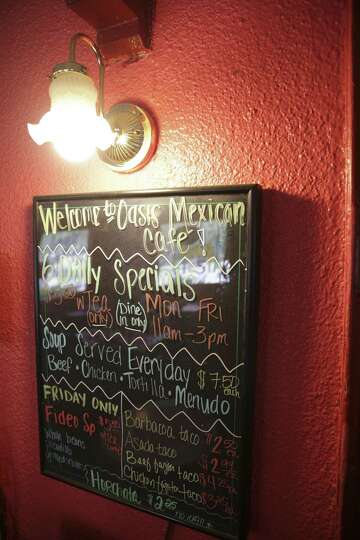 Welcome to Oasis Mexican
Cafe!
6 Daily Specials
w/Tea (only) (Dine in only) Mon Fri
11am-3pm
Soup Served Everyday
Beef · Chicken · Tortilla · Menudo $7.50 each
FRIDAY ONLY
Fideo Sp
whole beans
Barbacoa taco
Asada taco
Beef fajita taco
Chicken fajita taco
Horchata $2.25